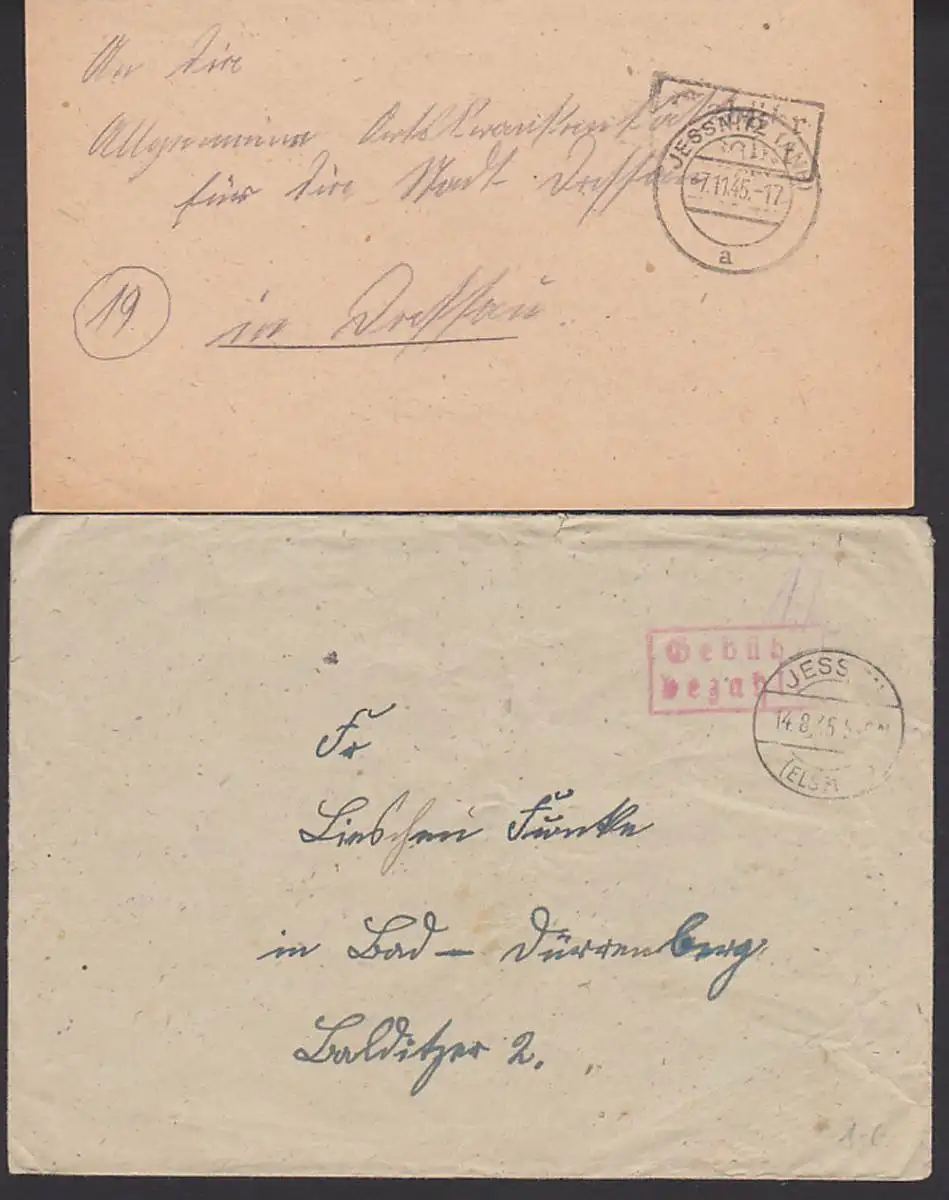 An die
Allgemeine Ortskrankenkasse
für die Stadt Dessau
19
in Dessau.
Gebühr
JESSNITZ (ANH)
17.11.45.-17
a
Gebüh
bezah
JESS
14.8.
(ELST
Fr
Lieschen Funke
in Bad - Dürrenberg
Balditzer 2.